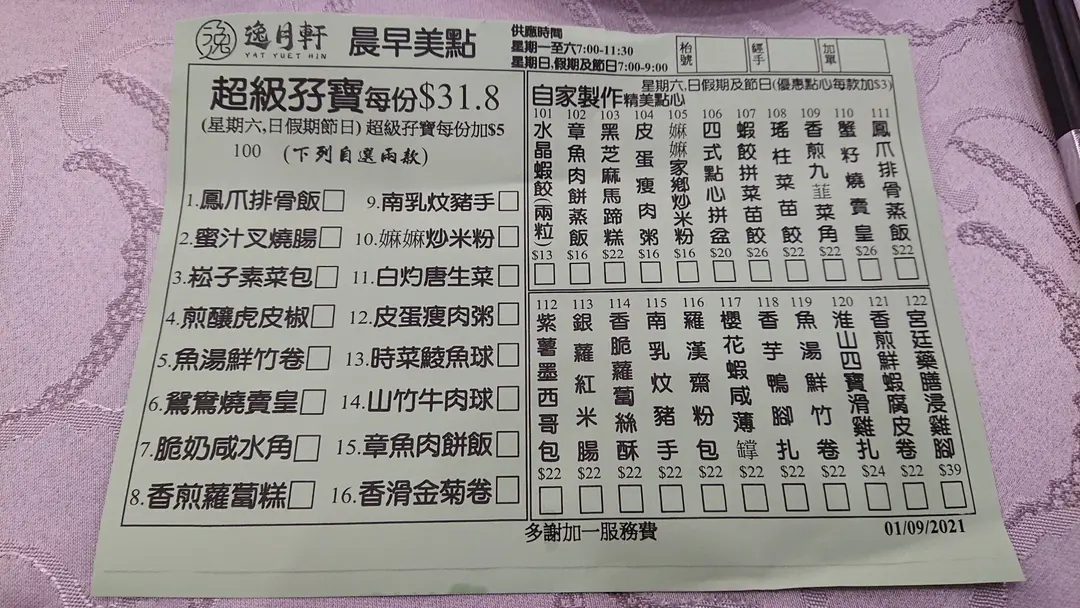 逸
逸月軒
YAT YUET HIN
晨早美點
供應時間
星期一至六7:00-11:30
星期日,假期及節日7:00-9:00
枱號
經手
加單
超級孖寶每份$31.8
(星期六,日假期節日) 超級孖寶每份加$5
100 (下列自選兩款)
1.鳳爪排骨飯
2.蜜汁叉燒腸
3.崧子素菜包
4.煎釀虎皮椒
5.魚湯鮮竹卷
6.鴛鴦燒賣皇
7.脆奶咸水角
8.香煎蘿蔔糕
9.南乳炆豬手
10.嫲嫲炒米粉
11.白灼唐生菜
12.皮蛋瘦肉粥
13.時菜鯪魚球
14.山竹牛肉球
15.章魚肉餅飯
16.香滑金菊卷
自家製作精美點心
星期六,日假期及節日(優惠點心每款加$3)
101 水晶蝦餃(兩粒) $13
102 章魚肉餅蒸飯 $16
103 黑芝麻馬蹄糕 $22
104 皮蛋瘦肉粥 $16
105 嫲嫲家鄉炒米粉 $16
106 四式點心拼盆 $20
107 蝦餃拼菜苗餃 $26
108 瑤柱菜苗餃 $22
109 香煎九韮菜角 $22
110 蟹籽燒賣皇 $26
111 鳳爪排骨蒸飯 $22
112 紫薯墨西哥包 $22
113 銀蘿紅米腸 $22
114 香脆蘿蔔絲酥 $22
115 南乳炆豬手 $22
116 羅漢齋粉包 $22
117 櫻花蝦咸薄罉 $22
118 香芋鴨腳扎 $22
119 魚湯鮮竹卷 $22
120 淮山四寶滑雞扎 $24
121 香煎鮮蝦腐皮卷 $22
122 宮廷藥膳浸雞腳 $39
多謝加一服務費
01/09/2021